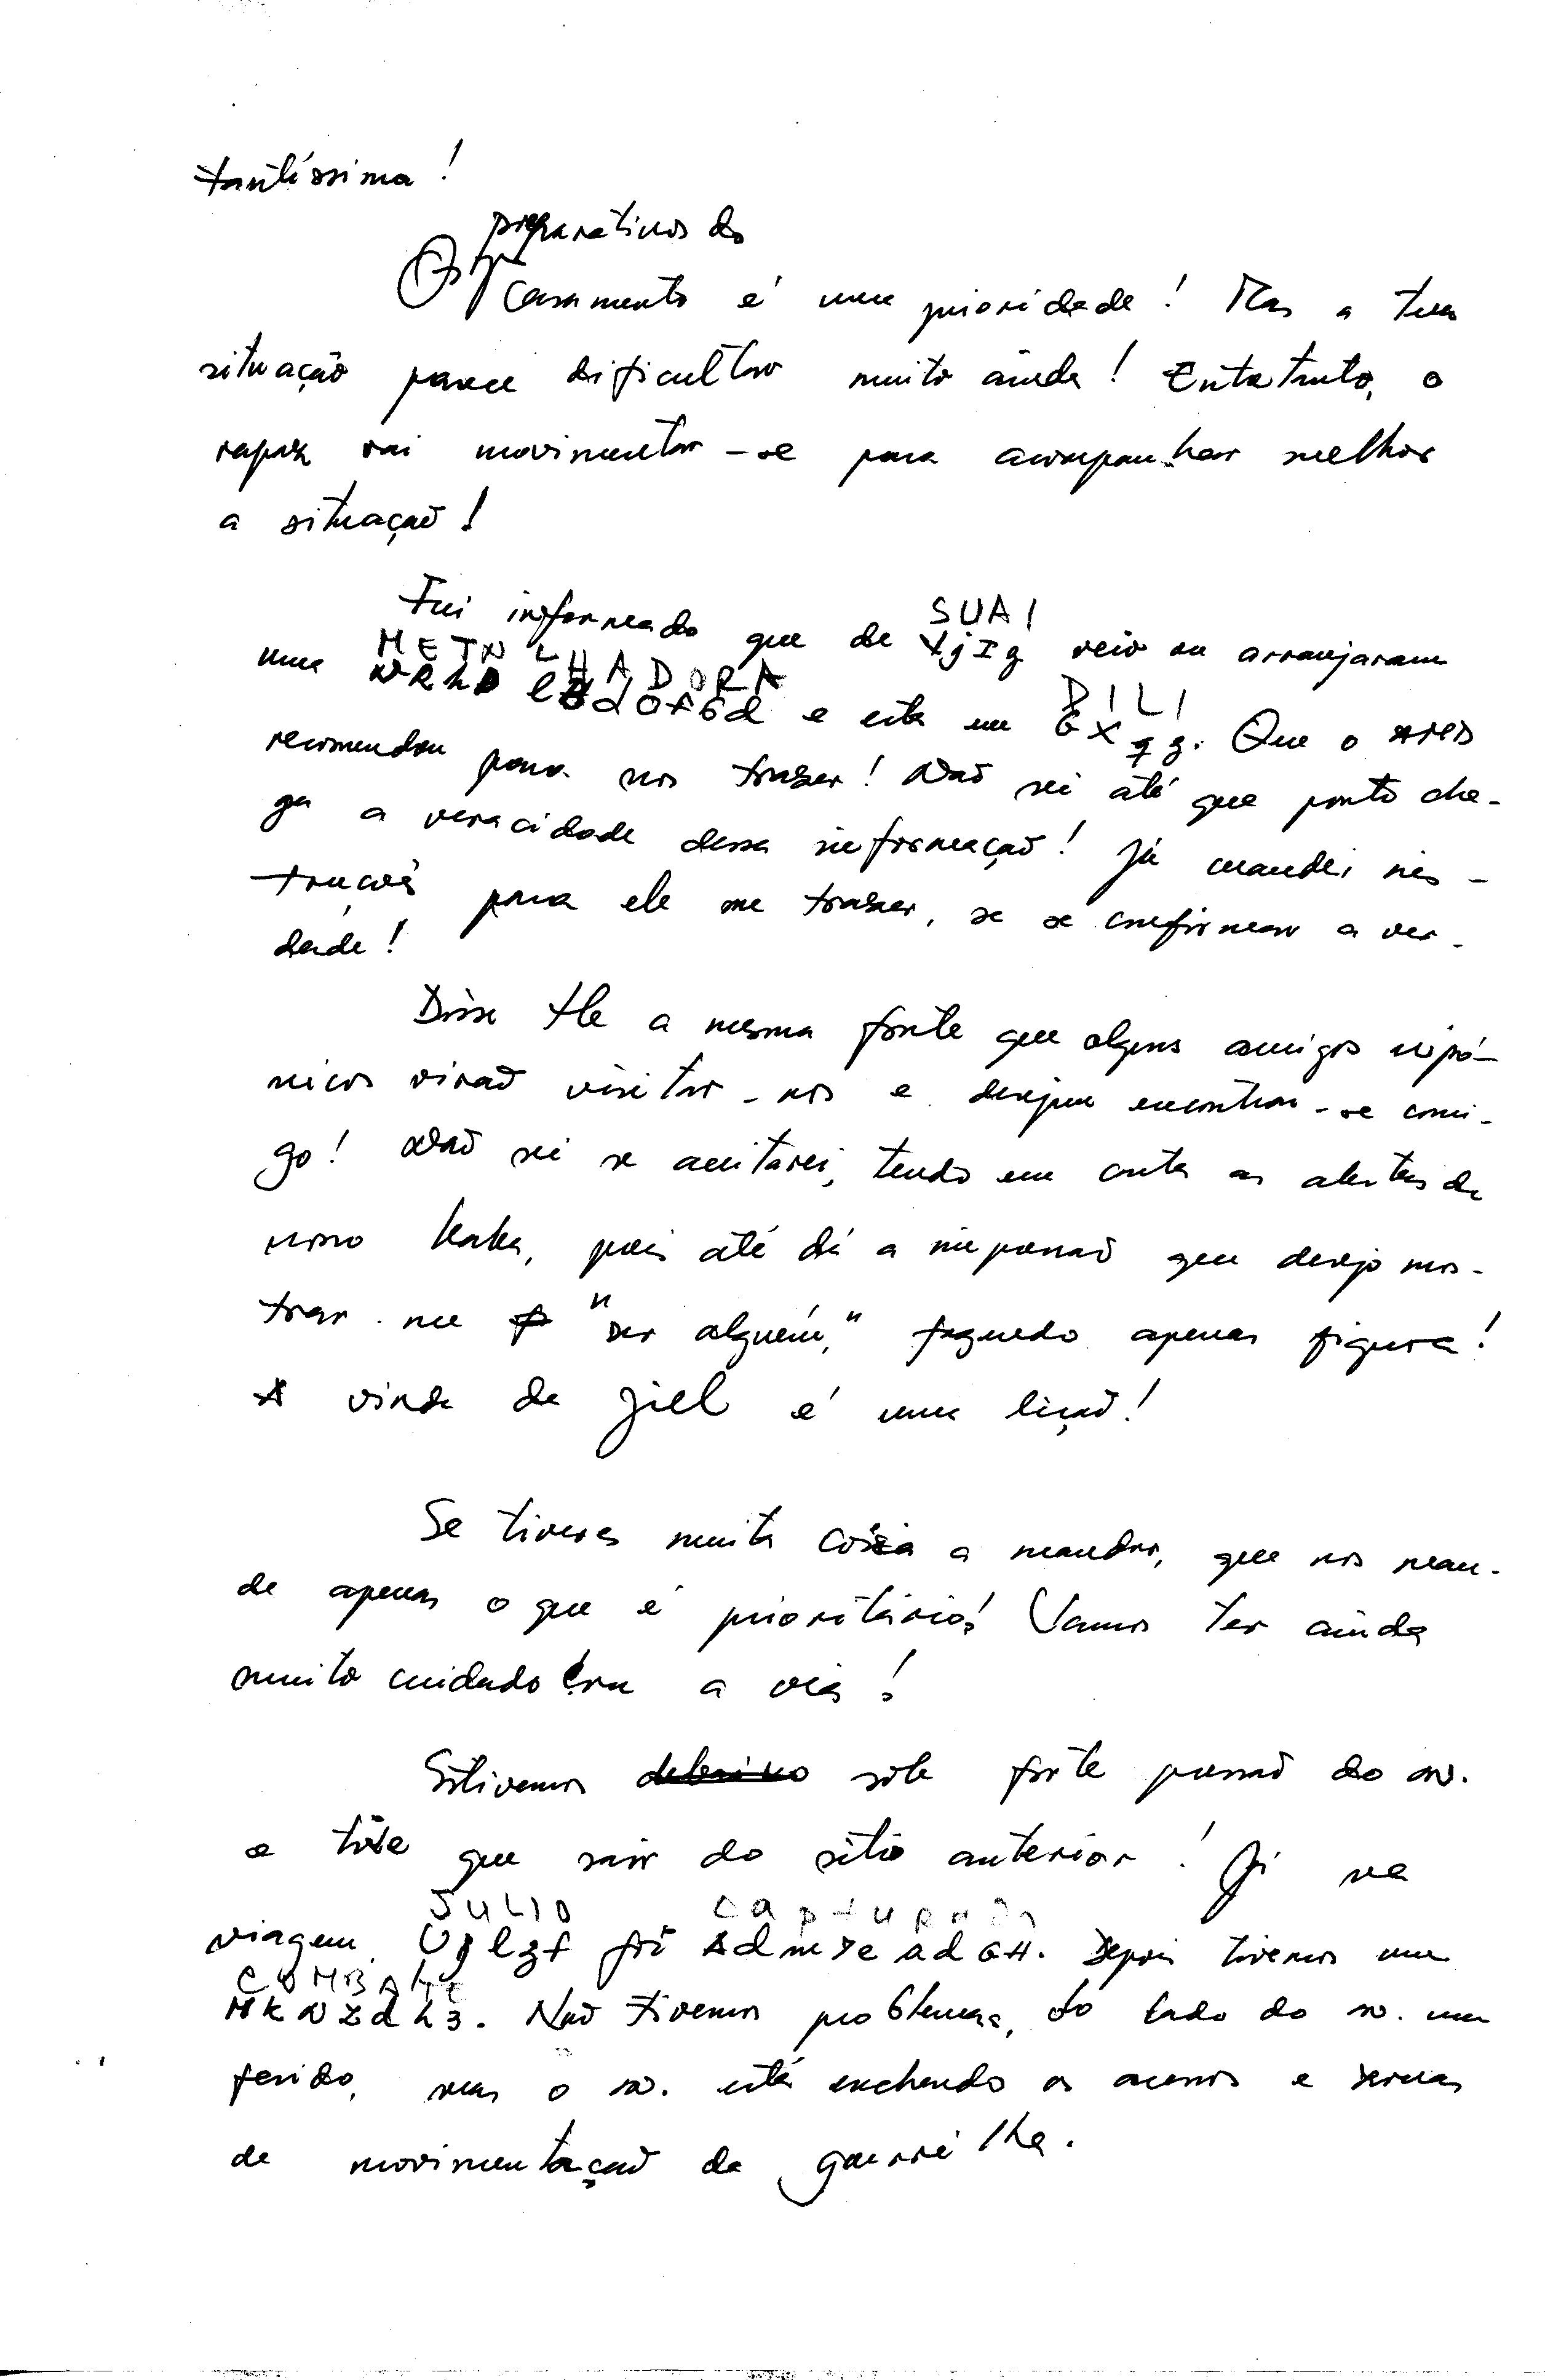 tantíssima!
preparativos do
Os casamento é uma prioridade! Mas a tua
situação parece dificultar muito ainda! Entretanto, o
rapaz vai movimentar-se para acompanhar melhor
a situação!
SUAI
Fui informado que de veio ou arranjaram
METRALHADORA DILI
uma e está em GXqg. Que o
recomendou para nos trazer! Não sei até que ponto che-
ga a veracidade dessa informação! Já mandei ins-
truções para ele me trazer, se se confirmar a ver-
dade!
Disse a mesma fonte que alguns amigos nipó-
nicos virão visitar-nos e desejam encontrar-se comi-
go! Não sei se aceitarei, tendo em conta as alertas do
nosso kaka, pois até dá a impressão que desejo mos-
trar-me "ser alguém," fazendo apenas figura!
A vinda de Jill é uma lição!
Se tiveres muita coisa a mandar, que nos man-
de apenas o que é prioritário! Vamos ter ainda
muito cuidado com a via!
Estivemos debaixo sob forte pressão do in.
e tive que sair do sítio anterior! Já na
JULIO capturado
viagem, Ujlgf foi. Depois tivemos um
COMBATE
MkNZdh3. Não tivemos problemas, do lado do in. um
ferido, mas o in. está enchendo os acessos e zonas
de movimentação da guerrilha.